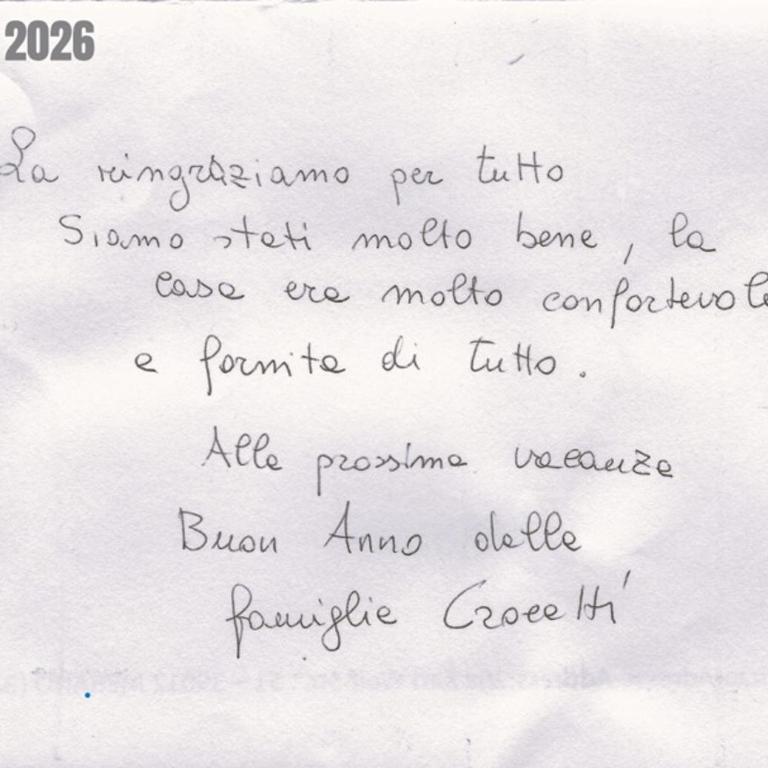 2026
La ringraziamo per tutto
Siamo stati molto bene, la
casa era molto confortevole
e fornita di tutto.
Alla prossima vacanza
Buon Anno dalla
famiglia Crocetti